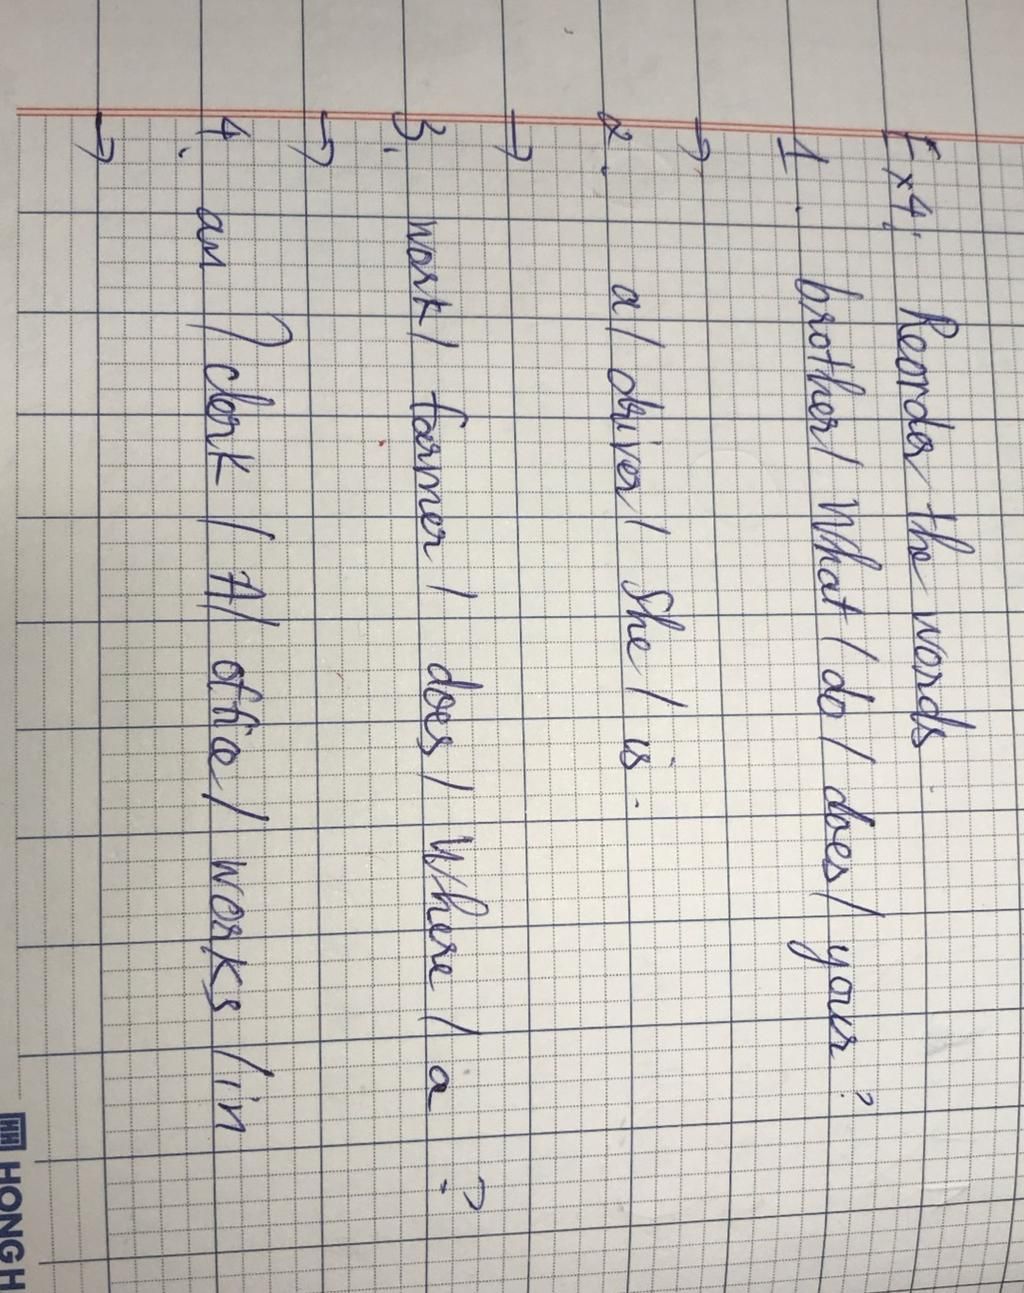 Ex4: Reorder the words.
1. brother / What / do / does / your ?
→
2. a / driver / She / is .
→
3. work / farmer / does / Where / a ?
→
4. an / clerk / A / office / works / in
→
HONG H